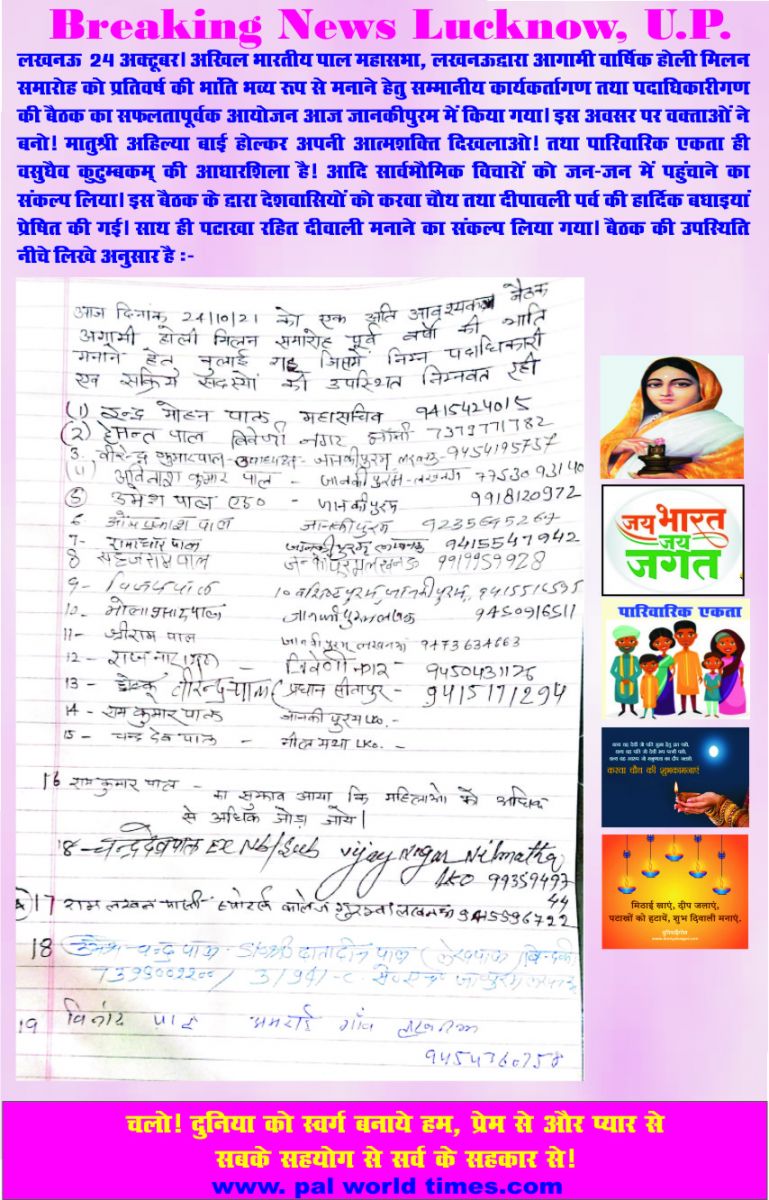 Breaking News Lucknow, U.P.
लखनऊ 24 अक्टूबर। अखिल भारतीय पाल महासभा, लखनऊद्वारा आगामी वार्षिक होली मिलन
समारोह को प्रतिवर्ष की भांति भव्य रूप से मनाने हेतु सम्मानीय कार्यकर्तागण तथा पदाधिकारीगण
की बैठक का सफलतापूर्वक आयोजन आज जानकीपुरम में किया गया। इस अवसर पर वक्ताओं ने
बनो! मातुश्री अहिल्या बाई होल्कर अपनी आत्मशक्ति दिखलाओ! तथा पारिवारिक एकता ही
वसुधैव कुटुम्बकम् की आधारशिला है! आदि सार्वभौमिक विचारों को जन-जन में पहुंचाने का
संकल्प लिया। इस बैठक के द्वारा देशवासियों को करवा चौथ तथा दीपावली पर्व की हार्दिक बधाइयां
प्रेषित की गई। साथ ही पटाखा रहित दीवाली मनाने का संकल्प लिया गया। बैठक की उपस्थिति
नीचे लिखे अनुसार है :-
आज दिनांक 24/10/21 को एक अति आवश्यक बैठक
अगामी होली मिलन समारोह पूर्व वर्षो की भाति
मनाने हेतु बुलाई गइ जिसमें निम्न पदाधिकारी
एव सक्रिय सदस्यो की उपस्थित निम्नवत रही
(1) इन्द्र मोहन पाल महासचिव 9415424015
(2) हेमन्त पाल त्रिवेणी नगर 7379771782
3. वीरेन्द्र कुमार पाल - जानकीपुरम लखनऊ - 9454195757
(4) अविनाश कुमार पाल - जानकीपुरम - लखनऊ 7753093140
5 उमेश पाल एड० - जानकीपुरम 9918120972
6 ओम प्रकाश पाल जानकीपुरम 9235695267
7- रामाधार पाल जानकीपुरम लखनऊ 9415547942
8 सहजराम पाल जानकीपुरम लखनऊ 9919959928
9- विजय पाल जानकीपुरम, 9415516595
10- भोला प्रसाद पाल जानकीपुरम 9450916511
11- श्रीराम पाल जानकीपुरम लखनऊ 9473634663
12 - त्रिवेणी नगर - 9450431126
13 - वीरेन्द्र पाल (प्रधान सीतापुर - 9415171294
14 - राम कुमार पाल जानकीपुरम LKO. -
15 - चन्द्र देव पाल - नील मथा LKO. -
16 राम कुमार पाल - का सुझाव आया कि महिलाओ को अधिक
से अधिक जोड़ा जाये।
18 - चन्द्रदेव पाल EX Nb/Sub Vijay Nagar Nilmatha
LKO 99359497
44
17 राम लखन पाल कालेज लखनऊ 9415596722
18 चन्द्र पाल
19 विनोद पाल गाँव लखनऊ
9454760758
जय भारत
जय
जगत
पारिवारिक एकता
करवा चौथ की शुभकामनाएं
मिठाई खाएं, दीप जलाएं,
पटाखों को हटायें, शुभ दिवाली मनाएं.
चलो! दुनिया को स्वर्ग बनाये हम, प्रेम से और प्यार से
सबके सहयोग से सर्व के सहकार से!
www. pal world times.com